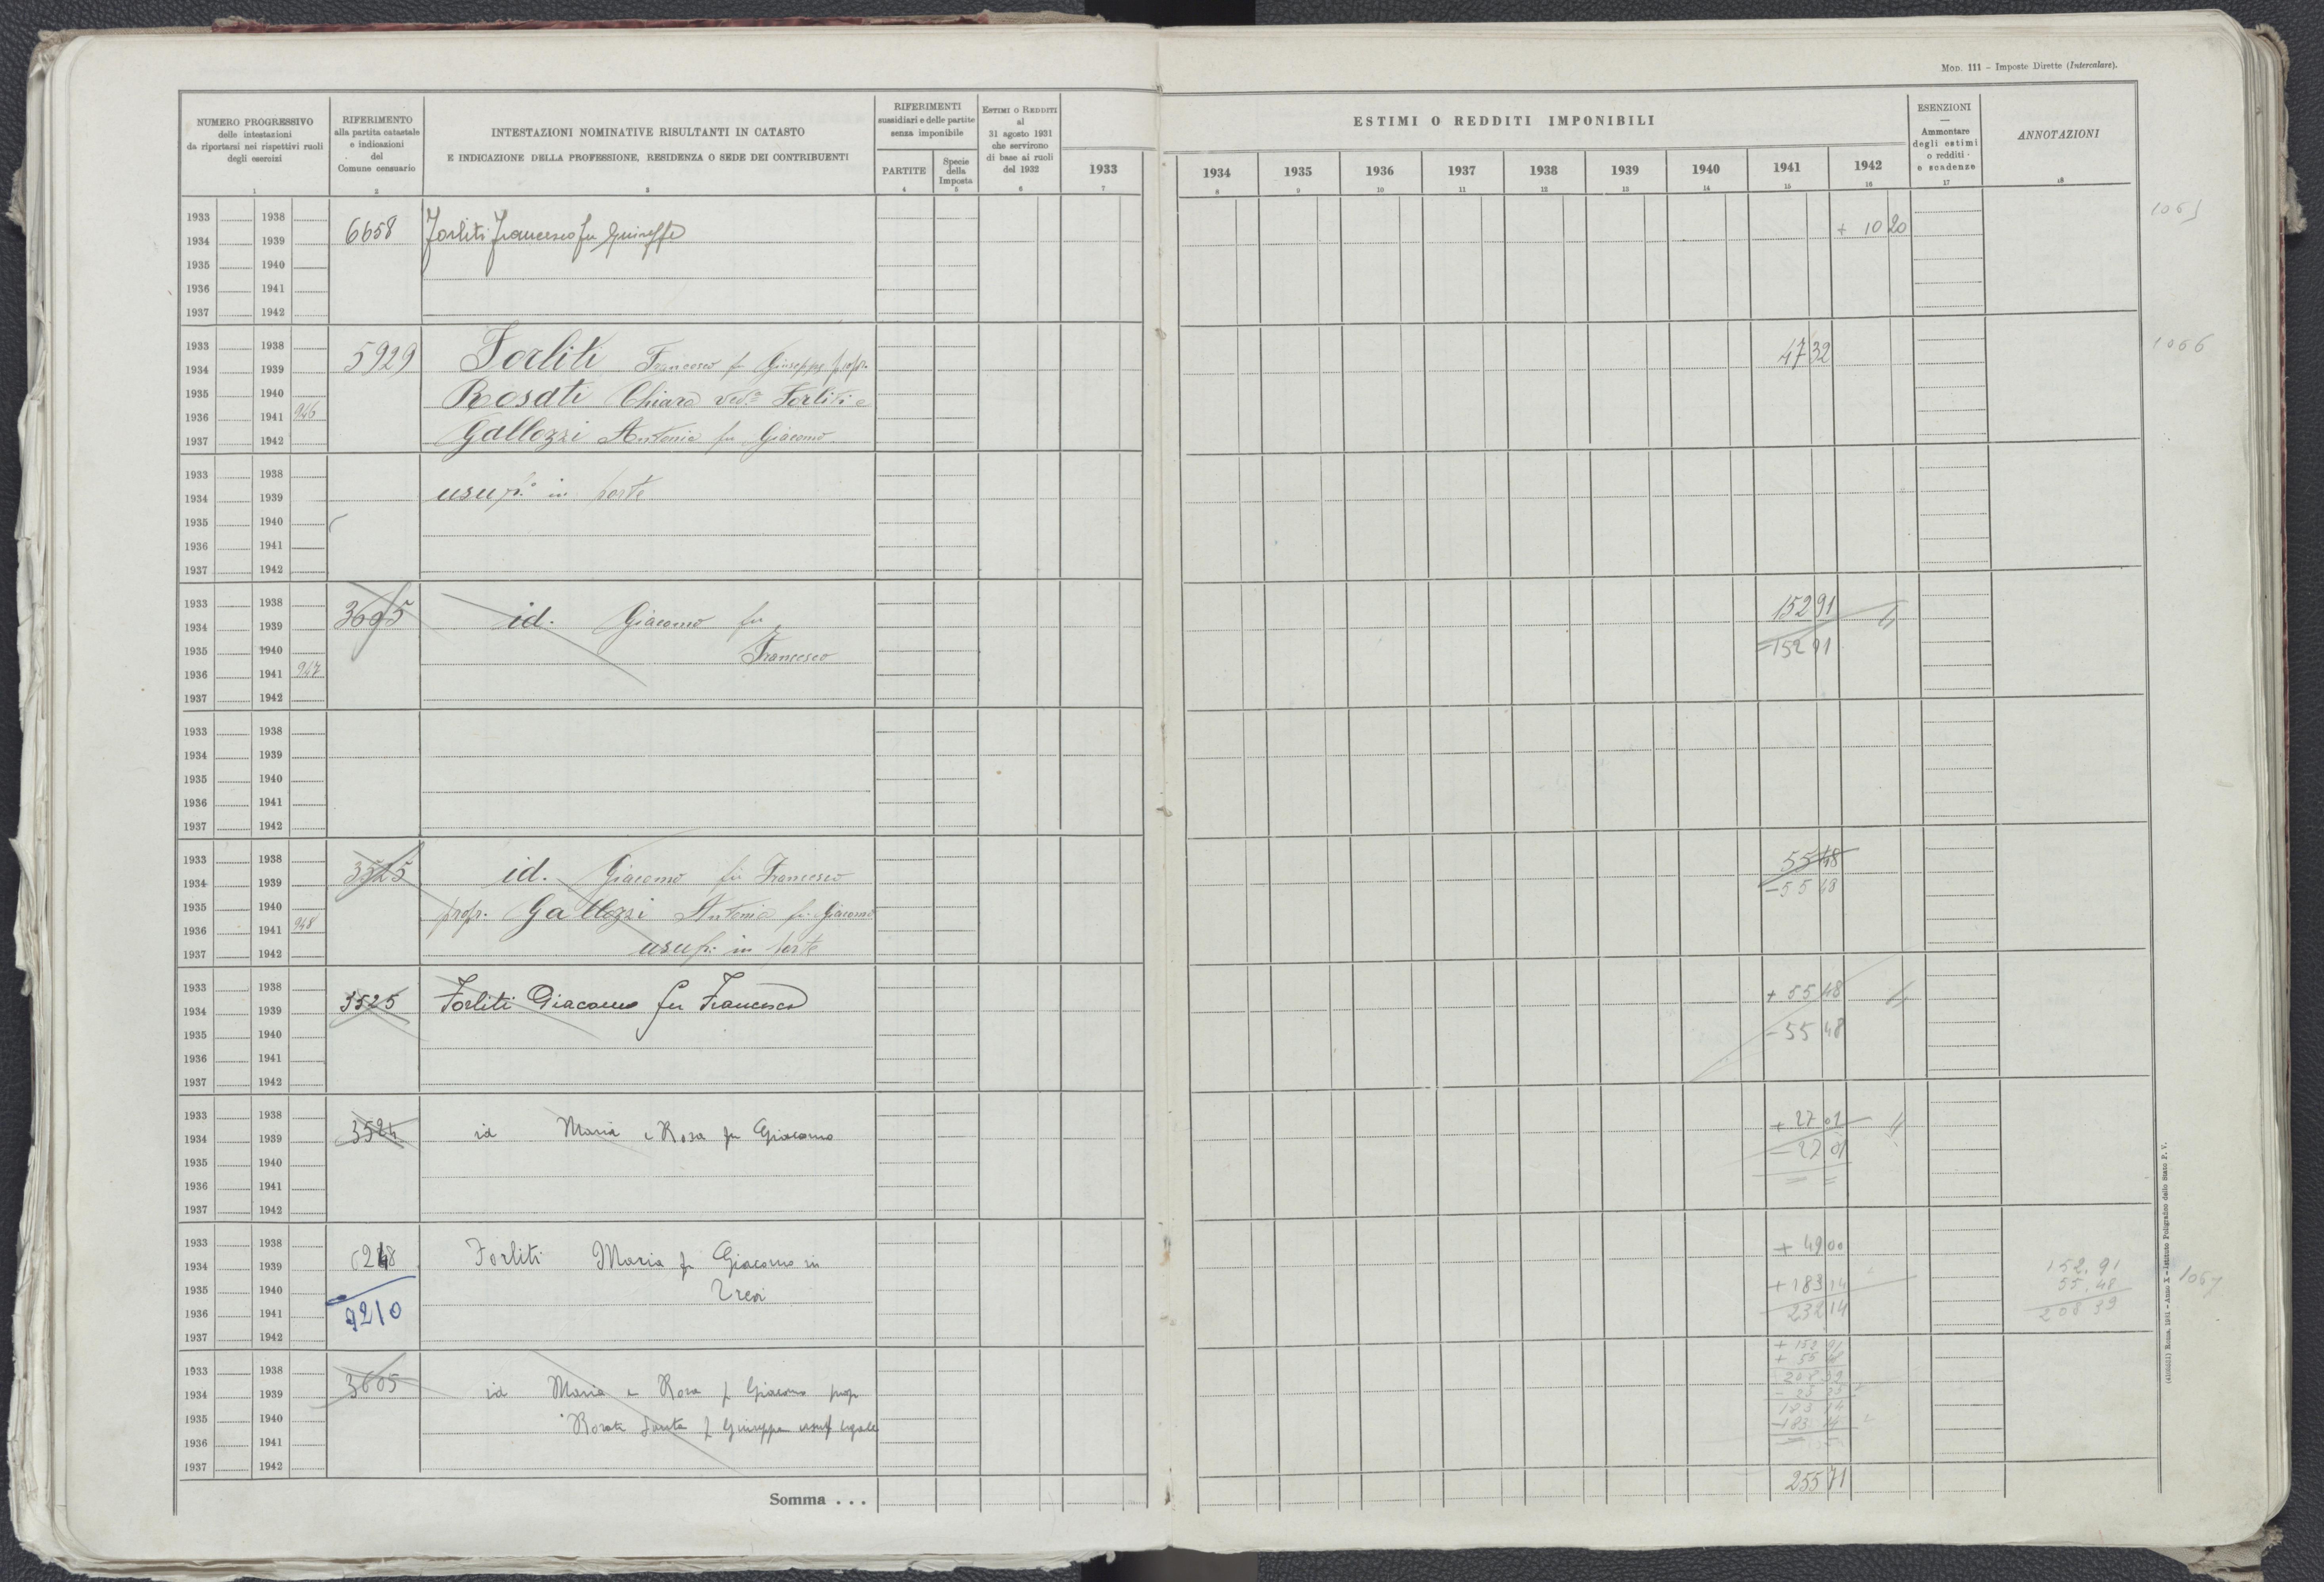 Mod. 111 – Imposte Dirette (Intercalare).
NUMERO PROGRESSIVO
delle intestazioni
da riportarsi nei rispettivi ruoli
degli esercizi
1
RIFERIMENTO
alla partita catastale
e indicazioni
del
Comune censuario
2
INTESTAZIONI NOMINATIVE RISULTANTI IN CATASTO
E INDICAZIONE DELLA PROFESSIONE, RESIDENZA O SEDE DEI CONTRIBUENTI
3
RIFERIMENTI
sussidiari e delle partite
senza imponibile
PARTITE
4
Specie
della
Imposta
5
ESTIMI O REDDITI
al
31 agosto 1931
che servirono
di base ai ruoli
del 1932
6
ESTIMI O REDDITI IMPONIBILI
1933 1934 1935 1936 1937 1938 1939 1940 1941 1942
7 8 9 10 11 12 13 14 15 16
ESENZIONI
—
Ammontare
degli estimi
o redditi
e scadenze
17
ANNOTAZIONI
18
1933 1938
1934 1939 6658 Forliti Francesco fu Giuseppe + 10 20
1935 1940
1936 1941
1937 1942
1933 1938
1934 1939 5929 Forliti Francesco fu Giuseppe propr. 47 32 1066
1935 1940 Rosati Chiara ved.a Forliti e
1936 1941 946
1937 1942 Gallozzi Antonia fu Giacomo
1933 1938
1934 1939 usufr. in parte
1935 1940
1936 1941
1937 1942
1933 1938
1934 1939 3605 id. Giacomo fu 152 91
1935 1940 Francesco – 152 91
1936 1941 947
1937 1942
1933 1938
1934 1939
1935 1940
1936 1941
1937 1942
1933 1938 55 48
1934 1939 3525 id. Giacomo fu Francesco – 55 48
1935 1940 propr. Gallozzi Antonia fu Giacomo
1936 1941 948
1937 1942 usufr. in parte
1933 1938
1934 1939 3525 Forliti Giacomo fu Francesco + 55 48
1935 1940 – 55 48
1936 1941
1937 1942
1933 1938
1934 1939 3524 id Maria e Rosa fu Giacomo + 27 01
1935 1940 – 27 01
1936 1941
1937 1942
1933 1938 + 49 00
1934 1939 6248 Forliti Maria fu Giacomo in 152,91
1935 1940 + 183 14 55,48
1936 1941 9210 232 14 208 39
1937 1942
1933 1938 + 152 91
+ 55 48
1934 1939 3605 id Maria e Rosa f Giacomo prop 208 39
1935 1940 Rosati Santa f Giuseppe usuf legale 183 14
1936 1941 – 183 14
1937 1942
Somma . . . 255 71
(4105521) Roma, 1931 – Anno X – Istituto Poligrafico dello Stato P. V.